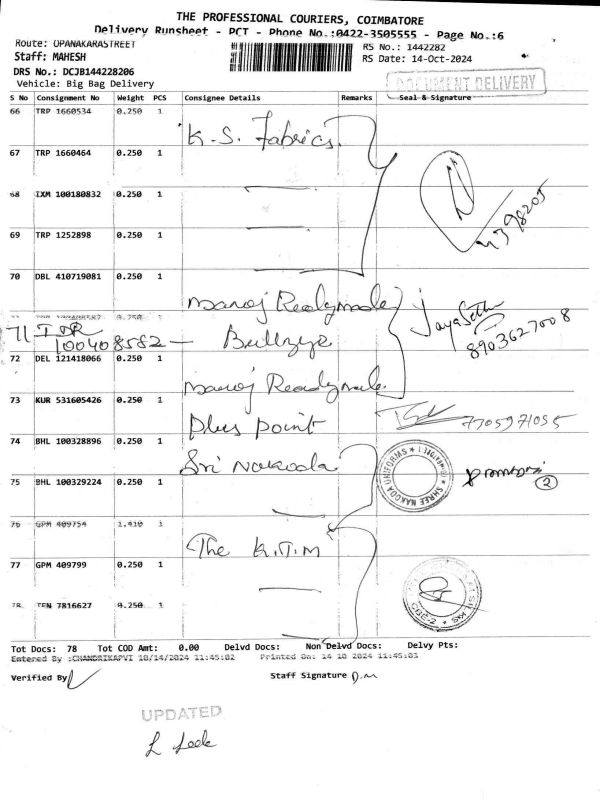 THE PROFESSIONAL COURIERS, COIMBATORE
Delivery Runsheet - PCT - Phone No.:0422-3505555 - Page No.:6
Route: OPANAKARASTREET
RS No.: 1442282
Staff: MAHESH
RS Date: 14-Oct-2024
DRS No.: DCJB144228206
Vehicle: Big Bag Delivery
DOCUMENT DELIVERY
S No Consignment No Weight PCS Consignee Details Remarks Seal & Signature
66 TRP 1660534 0.250 1 K.S. Fabrics
67 TRP 1660464 0.250 1
68 IXM 100180832 0.250 1
69 TRP 1252898 0.250 1
70 DBL 410719081 0.250 1 Manoj Readymade
71 IDR 100408582 - Bullzye
JayaSethu
8903627008
72 DEL 121418066 0.250 1 Manoj Readymade
73 KUR 531605426 0.250 1 Plus Point
7705971055
74 BHL 100328896 0.250 1 Sri Nakoda
SHREE NAKODA UNIFORMS
75 BHL 100329224 0.250 1
2
76 GPM 409754 1.410 1 The K.T.M
77 GPM 409799 0.250 1
78 TEN 7816627 0.250 1
CBE-2
Tot Docs: 78 Tot COD Amt: 0.00 Delvd Docs: Non Delvd Docs: Delvy Pts:
Entered By :CHANDRIKAPVI 10/14/2024 11:45:02 Printed On: 14 10 2024 11:45:03
Verified By
Staff Signature D.M
UPDATED